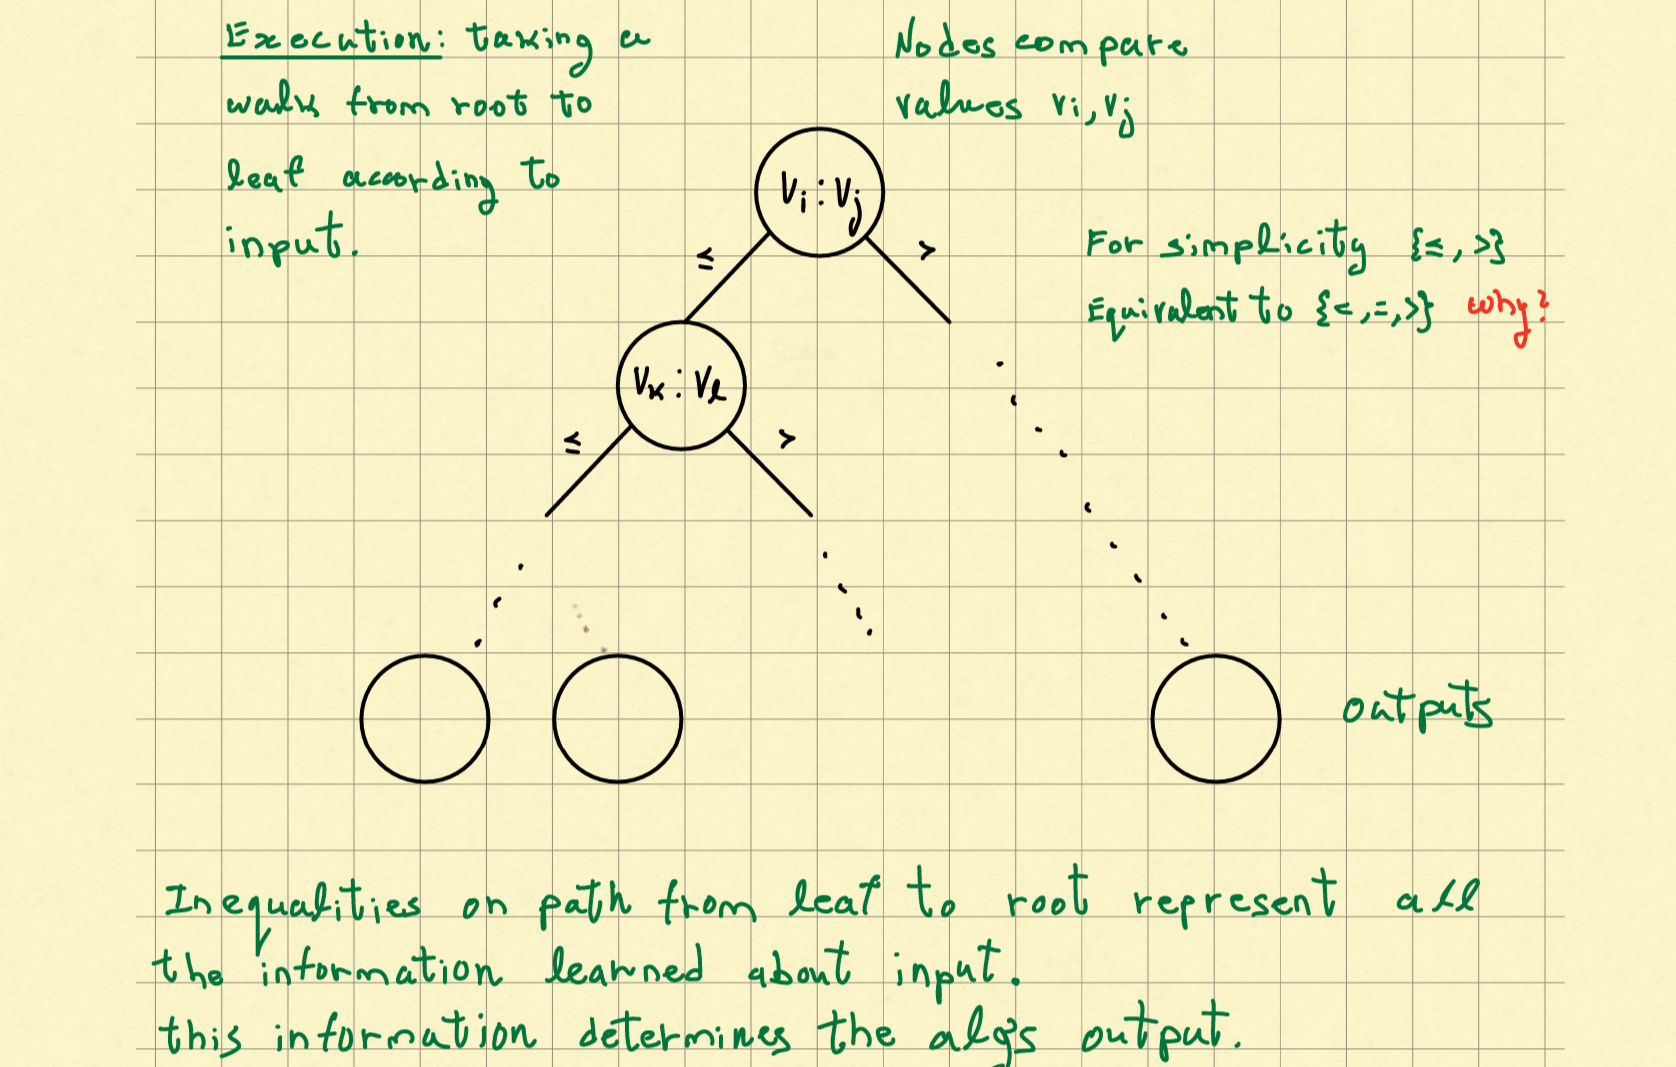 Execution: taking a
walk from root to
leaf according to
input.
Nodes compare
values vi, vj
Vi : Vj
≤
>
For simplicity {≤, >}
Equivalent to {<, =, >} why?
Vk : Vl
≤
>
outputs
Inequalities on path from leaf to root represent all
the information learned about input.
this information determines the alg's output.